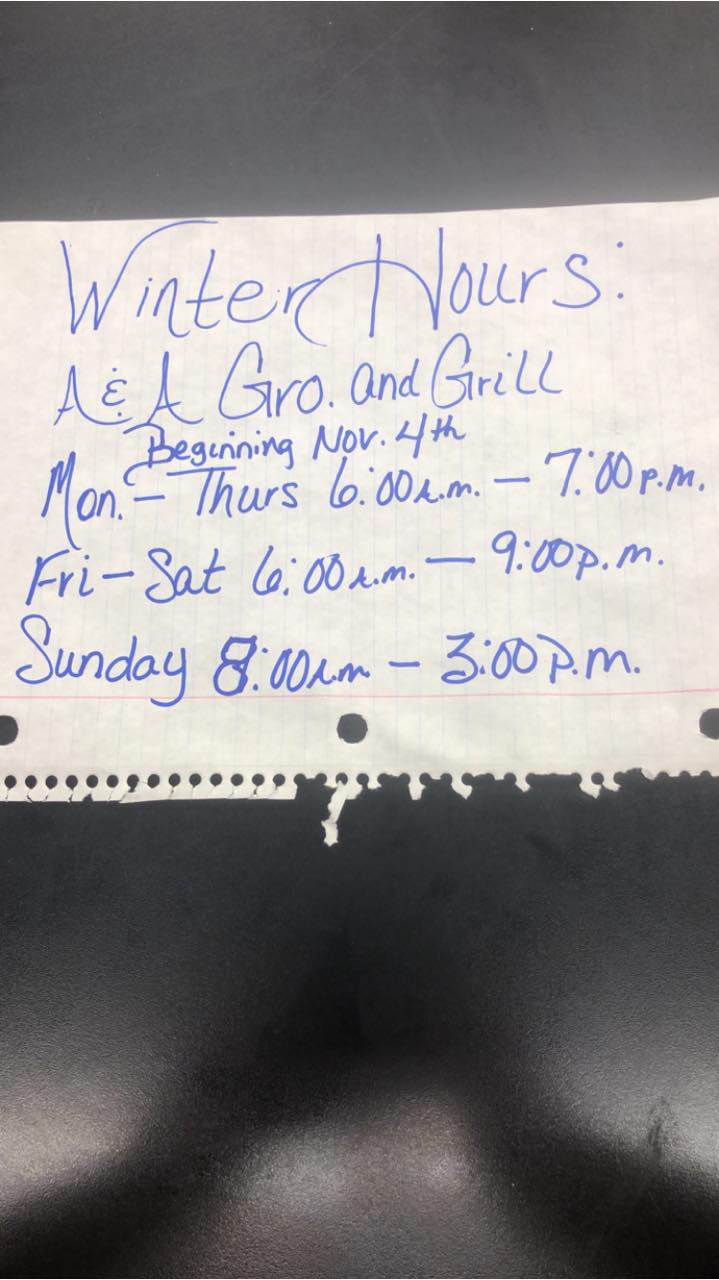 Winter Hours:
A & A Gro. and Grill
Beginning Nov. 4th
Mon. - Thurs 6:00 a.m. - 7:00 p.m.
Fri - Sat 6:00 a.m. - 9:00 p.m.
Sunday 8:00 a.m - 3:00 P.m.